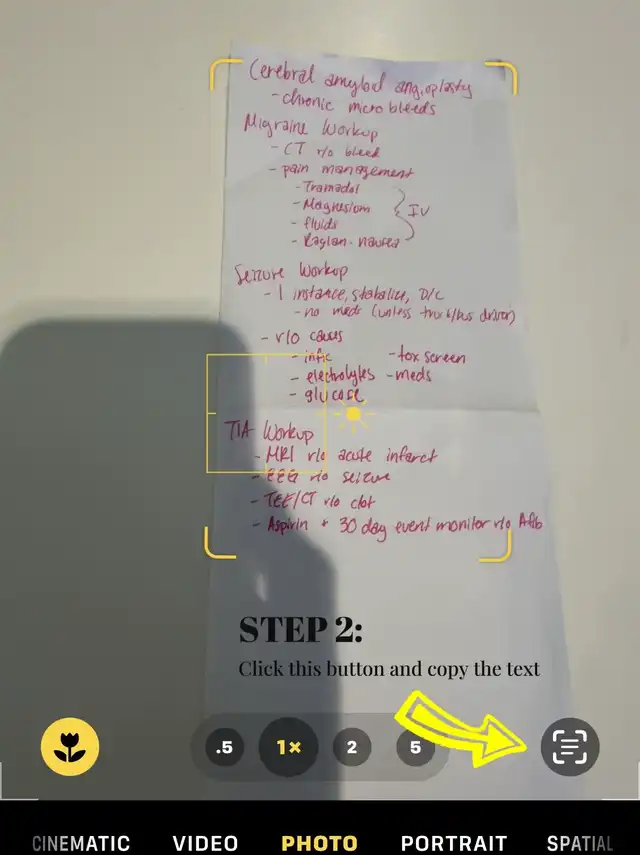 Cerebral amyloid angioplasty
- chronic microbleeds
Migraine Workup
- CT r/o bleed
- pain management
- Tramadol
- Magnesium
- fluids
- Raglan - nausea
IV
Seizure Workup
- 1 instance, stabalize, D/C
- no meds (unless truck/bus driver)
- r/o causes
- infxc -tox screen
- electrolytes -meds
- glucose
TIA Workup
- MRI r/o acute infarct
- EEG r/o seizure
- TEE/CT r/o clot
- Aspirin + 30 day event monitor r/o Afib
STEP 2:
Click this button and copy the text
.5 1× 2 5
CINEMATIC VIDEO PHOTO PORTRAIT SPATIAL